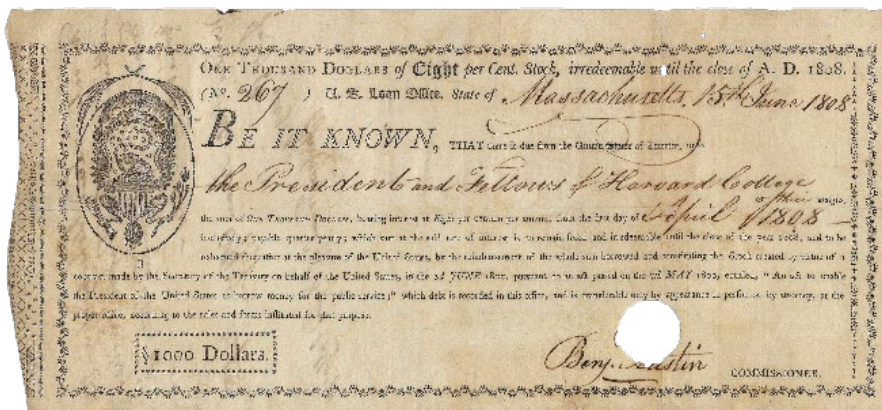 ONE THOUSAND DOLLARS of Eight per Cent. Stock, irredeemable until the close of A. D. 1808.
(No. 267 ) U. S. Loan Office. State of Massachusetts, 15th June 1808
BE IT KNOWN, THAT there is due from the United States of America, unto
the President and Fellows of Harvard College
or their assigns,
the sum of ONE THOUSAND DOLLARS, bearing interest at Eight per Centum per annum, from the first day of April 1808
inclusively, payable quarter yearly; which sum at the said rate of interest is to remain fixed and irredeemable until the close of the year 1808, and to be
redeemed thereafter at the pleasure of the United States, by the reimbursement of the whole sum borrowed and constituting the Stock created by virtue of a
contract made by the Secretary of the Treasury on behalf of the United States, in the JUNE 1800, pursuant to an act passed on the 7th MAY 1800, entitled, " An act to enable
the President of the United States to borrow money for the public service;" which debt is recorded in this office, and is transferable only by appearance in person or by attorney, at the
proper office, according to the rules and forms instituted for that purpose.
1000 Dollars.
Benj. Austin
COMMISSIONER.